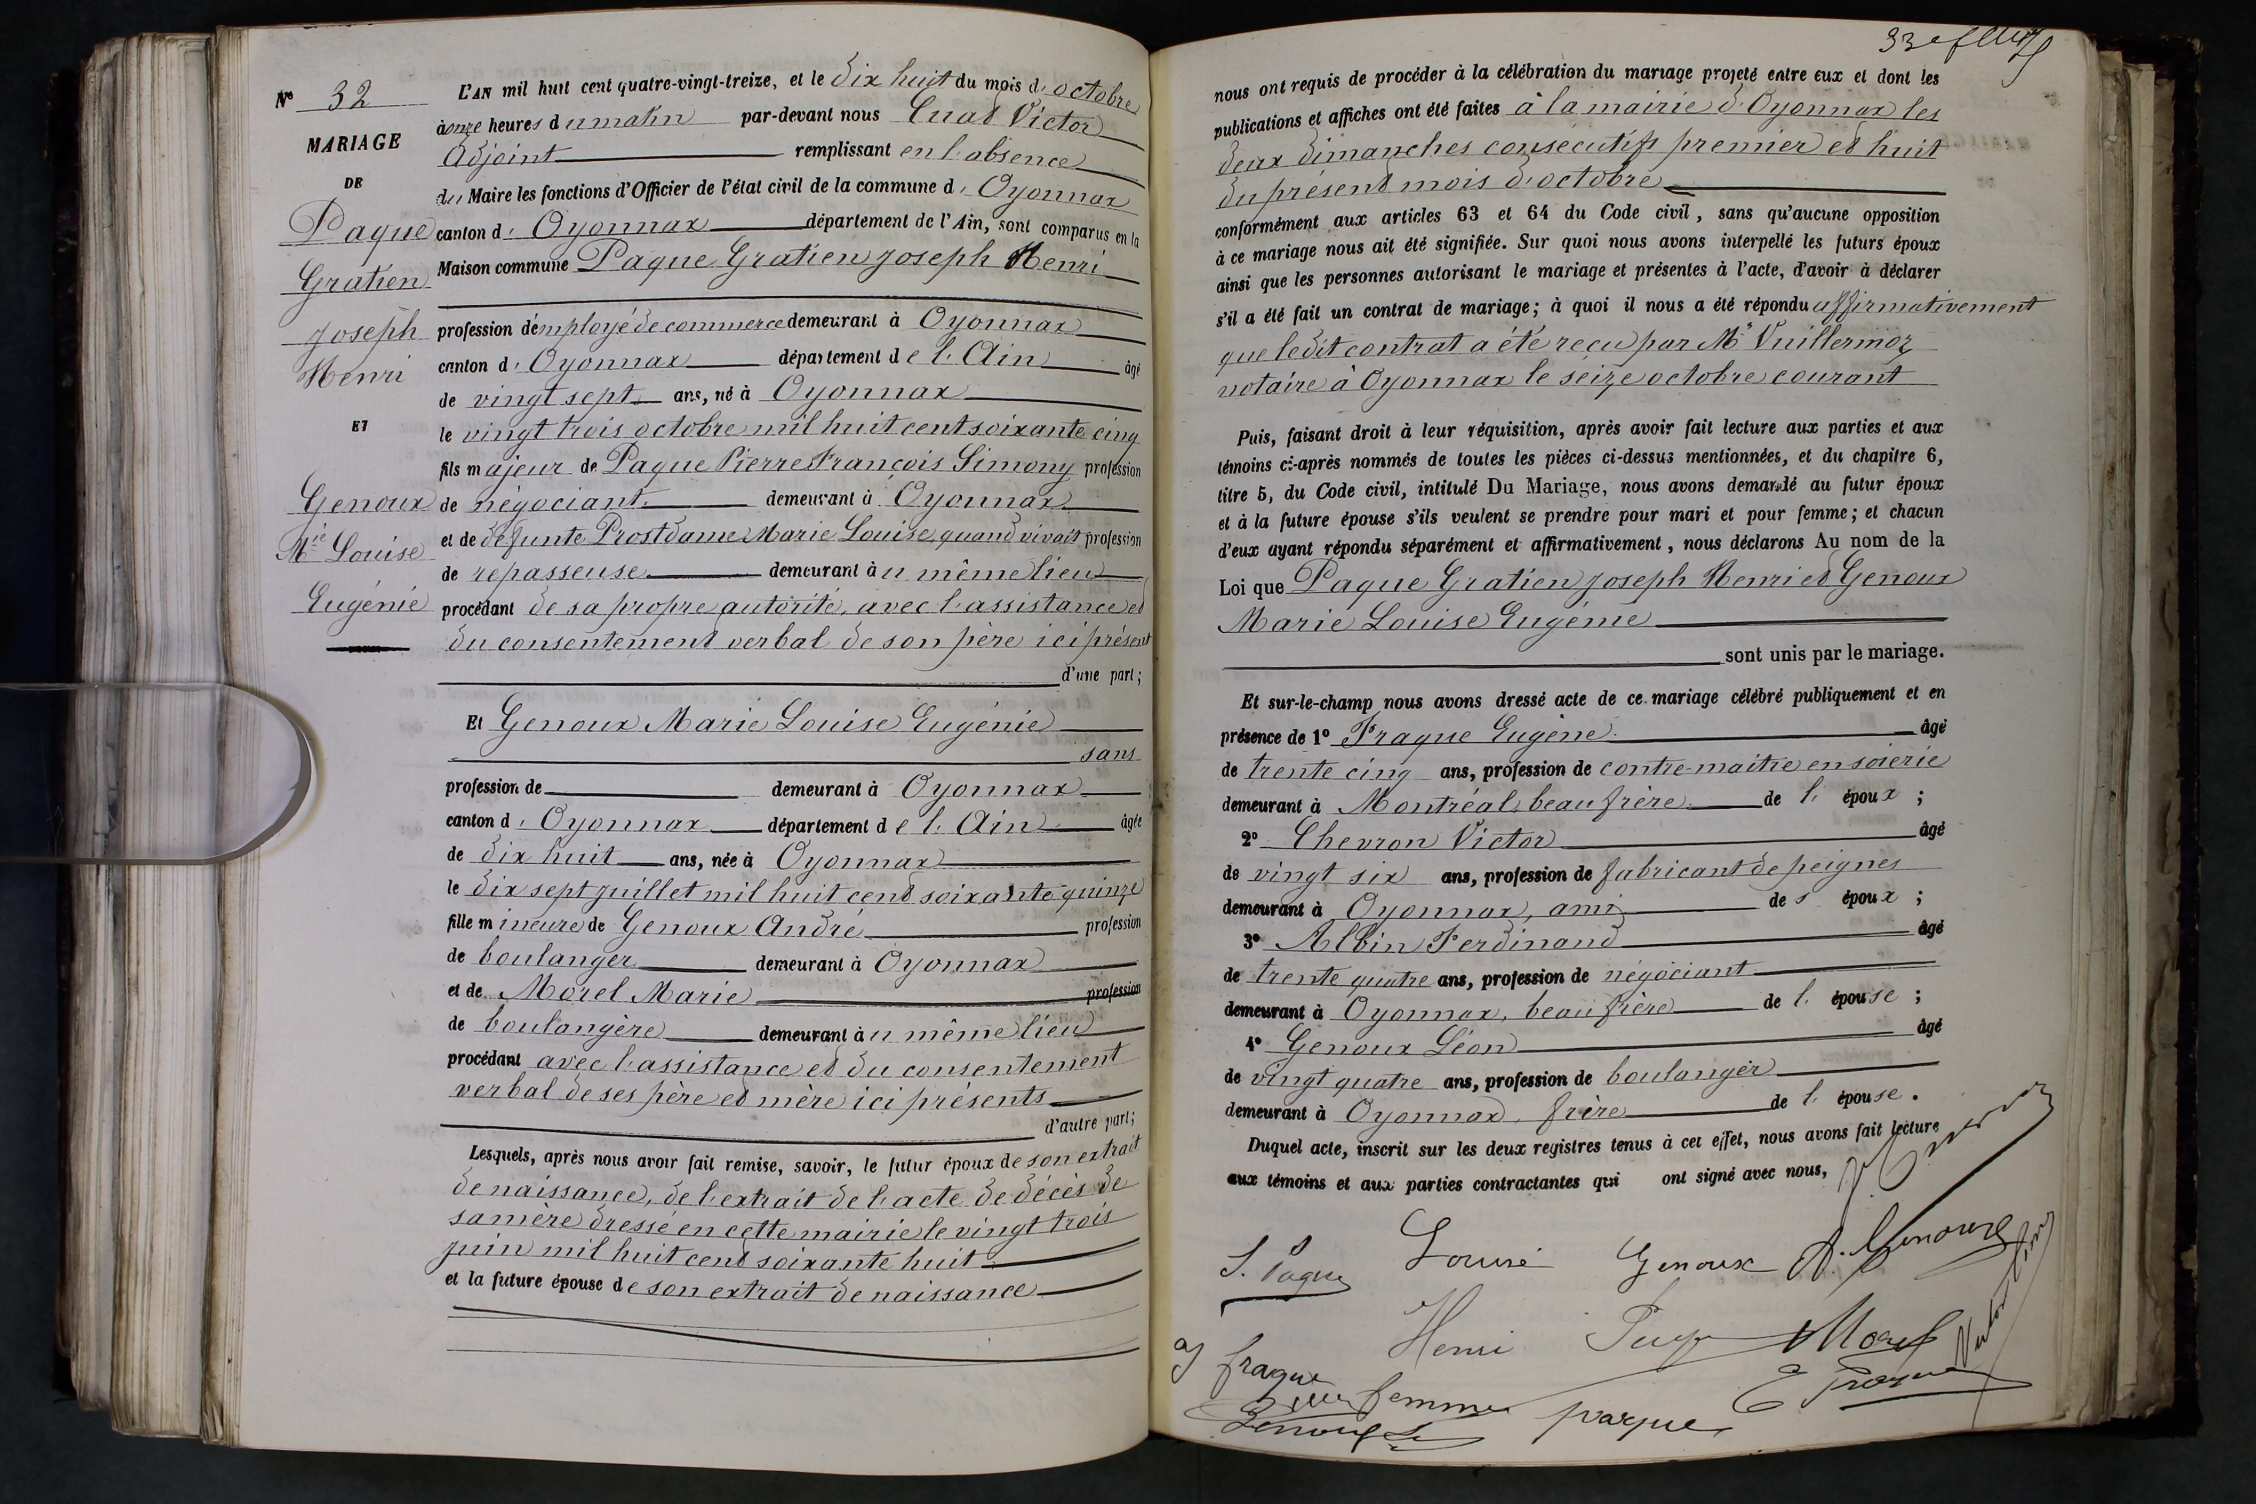 N° 32
MARIAGE
DE
Paque
Gratien
Joseph
Henri
ET
Genoux
Mie Louise
Eugénie
L'AN mil huit cent quatre-vingt-treize, et le dix huit du mois d'octobre
à onze heures du matin par-devant nous Cuat Victor
Adjoint remplissant en l'absence
du Maire les fonctions d'Officier de l'état civil de la commune d'Oyonnax
canton d'Oyonnax département de l'Ain, sont comparus en la
Maison commune Paque Gratien Joseph Henri
profession d'employé de commerce demeurant à Oyonnax
canton d'Oyonnax département de l'Ain âgé
de vingt sept ans, né à Oyonnax
le vingt trois octobre mil huit cent soixante cinq
fils majeur de Paque Pierre François Simony profession
de négociant demeurant à Oyonnax
et de défunte Prostdame Marie Louise, quand vivait profession
de repasseuse demeurant au même lieu
procédant de sa propre autorité, avec l'assistance et
du consentement verbal de son père ici présent
d'une part;
Et Genoux Marie Louise Eugénie
sans
profession de demeurant à Oyonnax
canton d'Oyonnax département de l'Ain âgée
de dix huit ans, née à Oyonnax
le dix sept juillet mil huit cent soixante quinze
fille mineure de Genoux André profession
de boulanger demeurant à Oyonnax
et de Morel Marie profession
de boulangère demeurant au même lieu
procédant avec l'assistance et du consentement
verbal de ses père et mère ici présents
d'autre part;
Lesquels, après nous avoir fait remise, savoir, le futur époux de son extrait
de naissance, de l'extrait de l'acte de décès de
sa mère dressé en cette mairie le vingt trois
juin mil huit cent soixante huit
et la future épouse de son extrait de naissance
nous ont requis de procéder à la célébration du mariage projeté entre eux et dont les
publications et affiches ont été faites à la mairie d'Oyonnax les
deux dimanches consécutifs premier et huit
du présent mois d'octobre
conformément aux articles 63 et 64 du Code civil, sans qu'aucune opposition
à ce mariage nous ait été signifiée. Sur quoi nous avons interpellé les futurs époux
ainsi que les personnes autorisant le mariage et présentes à l'acte, d'avoir à déclarer
s'il a été fait un contrat de mariage; à quoi il nous a été répondu affirmativement
que ledit contrat a été reçu par Me Vuillermoz
notaire à Oyonnax le seize octobre courant
Puis, faisant droit à leur réquisition, après avoir fait lecture aux parties et aux
témoins ci-après nommés de toutes les pièces ci-dessus mentionnées, et du chapitre 6,
titre 5, du Code civil, intitulé Du Mariage, nous avons demandé au futur époux
et à la future épouse s'ils veulent se prendre pour mari et pour femme; et chacun
d'eux ayant répondu séparément et affirmativement, nous déclarons Au nom de la
Loi que Paque Gratien Joseph Henri et Genoux
Marie Louise Eugénie
sont unis par le mariage.
Et sur-le-champ nous avons dressé acte de ce mariage célébré publiquement et en
présence de 1° Fraque Eugène âgé
de trente cinq ans, profession de contre-maître en soierie
demeurant à Montréal, beau frère de l'époux;
2° Chevron Victor âgé
de vingt six ans, profession de fabricant de peignes
demeurant à Oyonnax, ami des époux;
3° Albin Ferdinand âgé
de trente quatre ans, profession de négociant
demeurant à Oyonnax, beau frère de l'épouse;
4° Genoux Léon âgé
de vingt quatre ans, profession de boulanger
demeurant à Oyonnax, frère de l'épouse.
Duquel acte, inscrit sur les deux registres tenus à cet effet, nous avons fait lecture
aux témoins et aux parties contractantes qui ont signé avec nous,
S. Paque Louise Genoux A. Genoux
Henri Morel
fraque
femme paque